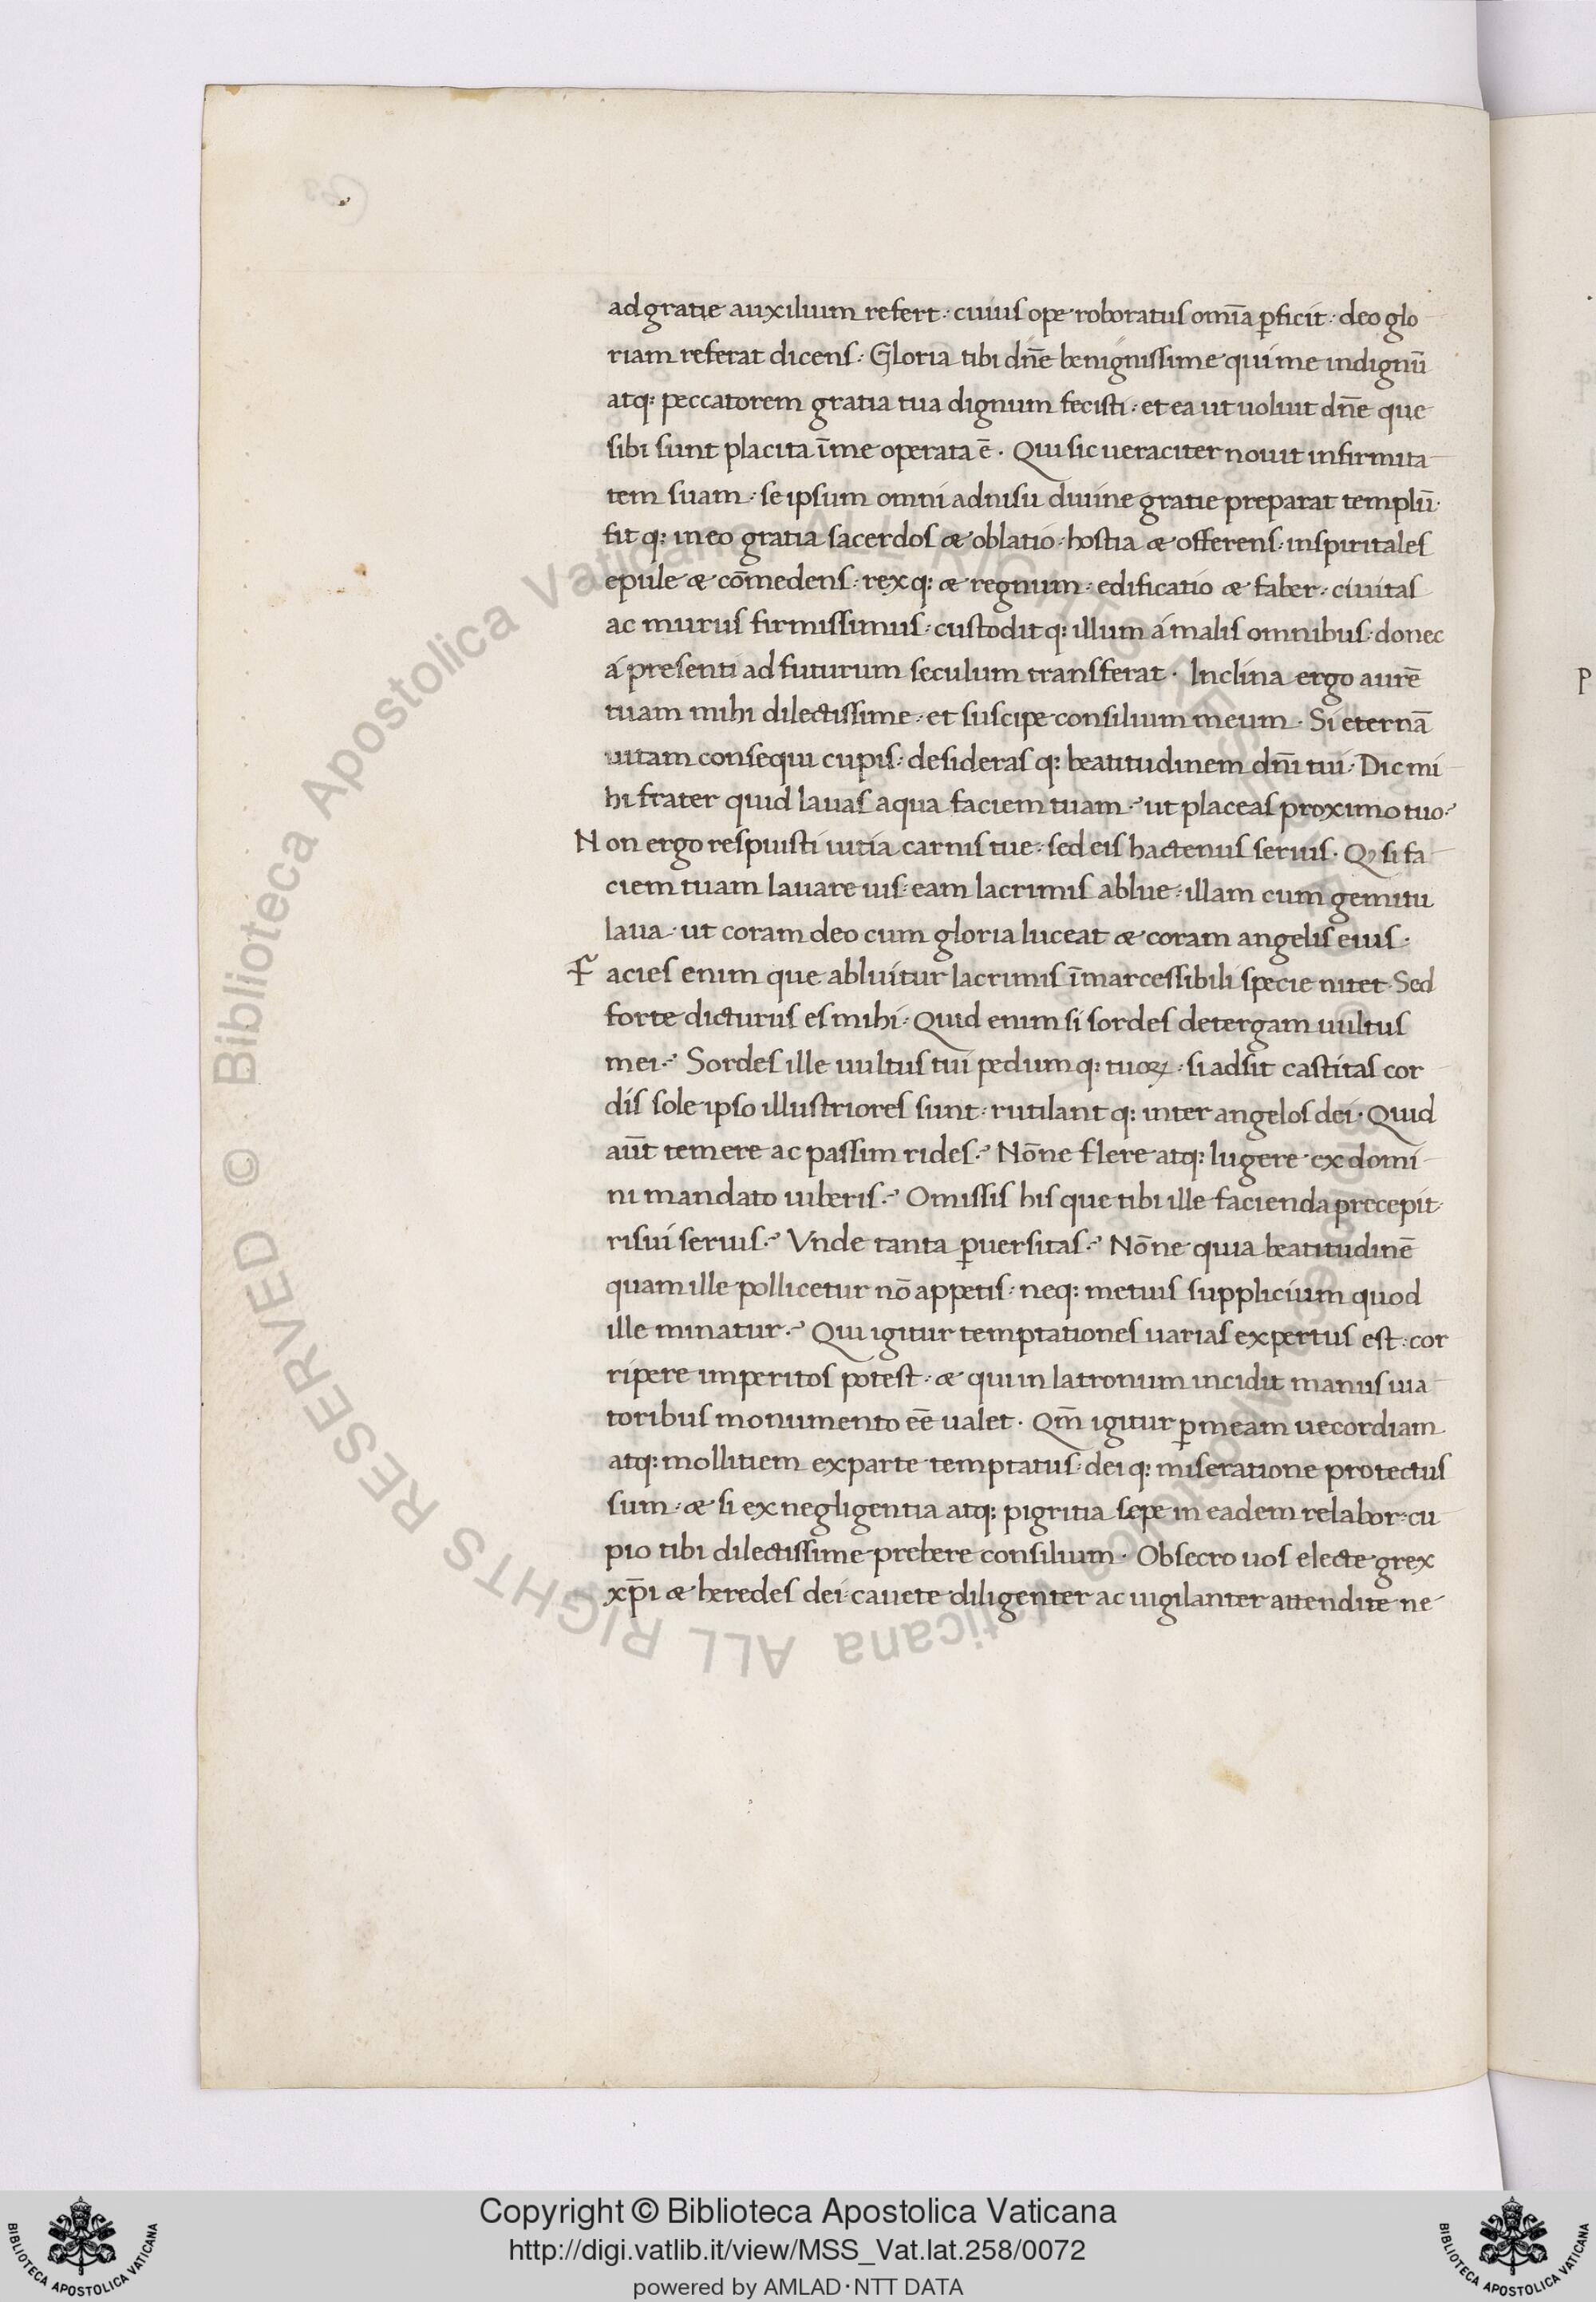 ad gratie auxilium refert: cuius ope roboratus om̄ia ꝑficit: deo glo
riam referat dicens: Gloria tibi dn̄e benignissime qui me indignū
atq: peccatorem gratia tua dignum fecisti: et ea ut uoluit dn̄e que
sibi sunt placita ī me operata ē. Qui sic ueraciter nouit infirmita
tem suam: se ipsum omni adnisu diuine gratie preparat templū.
fit q: in eo gratia sacerdos æ oblatio: hostia æ offerens: inspiritales
epule æ cōmedens: rex q: æ regnum: edificatio æ faber: ciuitas
ac murus firmissimus: custodit q: illum á malis omnibus: donec
á presenti ad futurum seculum transferat. Inclina ergo aurē
tuam mihi dilectissime: et suscipe consilium meum. Si eternā
uitam consequi cupis: desideras q: beatitudinem dn̄i tui. Dic mi
hi frater quid lauas aqua faciem tuam? ut placeas proximo tuo?
Non ergo respuisti uitia carnis tue: sed eis hactenus seruis. Qꝫ si fa
ciem tuam lauare uis: eam lacrimis ablue: illam cum gemitu
laua: ut coram deo cum gloria luceat æ coram angelis eius.
Facies enim que abluitur lacrimis īmarcessibili specie nitet. Sed
forte dicturus es mihi. Quid enim si sordes detergam uultus
mei? Sordes ille uultus tui pedum q: tuoꝝ: si adsit castitas cor
dis sole ipso illustriores sunt: rutilant q: inter angelos dei. Quid
aūt temere ac passim rides? Nōne flere atq: lugere ex domi
ni mandato iuberis? Omissis his que tibi ille facienda precepit
risui seruis? Vnde tanta ꝑuersitas? Nōne quia beatitudinē
quam ille pollicetur nō appetis: neq: metuis supplicium quod
ille minatur? Qui igitur temptationes uarias expertus est: cor
ripere imperitos potest: æ qui in latronum incidit manus uia
toribus monumento eē ualet. Qm̄ igitur ꝑ meam uecordiam
atq: mollitiem ex parte temptatus: dei q: miseratione protectus
sum: æ si ex negligentia atq: pigritia sepe in eadem relabor: cu
pio tibi dilectissime prebere consilium. Obsecro uos electe grex
xp̄i æ heredes dei: cauete diligenter ac uigilanter attendite ne
© Biblioteca Apostolica Vaticana ALL RIGHTS RESERVED
Copyright © Biblioteca Apostolica Vaticana
http://digi.vatlib.it/view/MSS_Vat.lat.258/0072
powered by AMLAD·NTT DATA
BIBLIOTECA APOSTOLICA VATICANA
BIBLIOTECA APOSTOLICA VATICANA